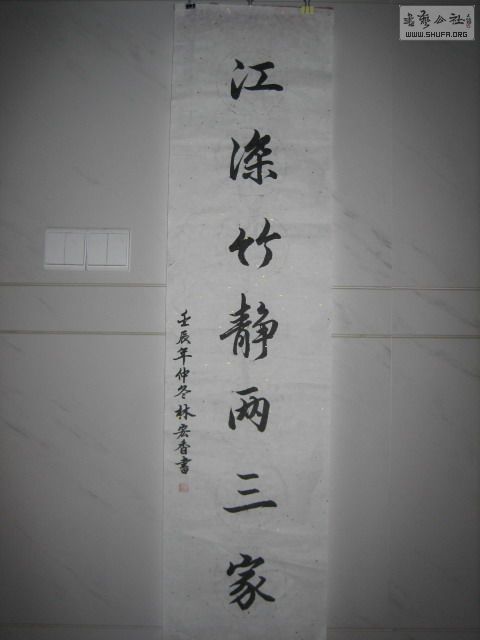 江深竹静两三家
壬辰年仲冬林宏香書
書藝公社
WWW.SHUFA.ORG